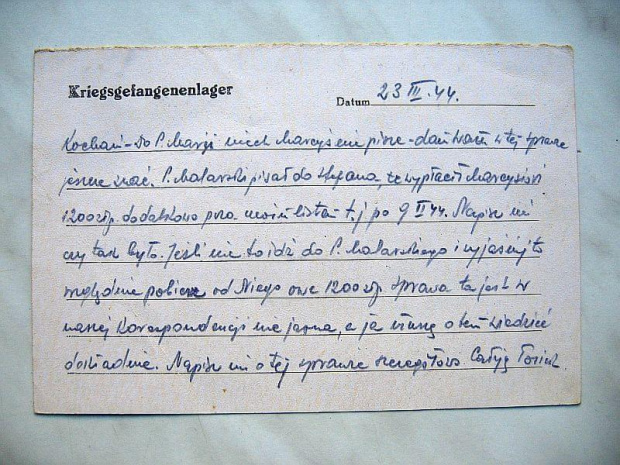 Kriegsgefangenenlager
Datum 23 III. 44.
Kochani - Do P. Marji niech Marcyś nie pisze - dam Wam w tej sprawie
jeszcze znać. P. Malarski pisał do Stefana, że wypłacił Marcysiowi
1200 zł. dodatkowo poza moim listem t.j. po 9 II 44. Napisz mi
czy tak było. Jeśli nie to idź do P. Malarskiego i wyjaśnij to
względnie pobierz od Niego owe 1200 zł. Sprawa ta jest w
naszej korespondencji nie jasna, a ja muszę o tem wiedzieć
dokładnie. Napisz mi o tej sprawie szczegółowo Całuję